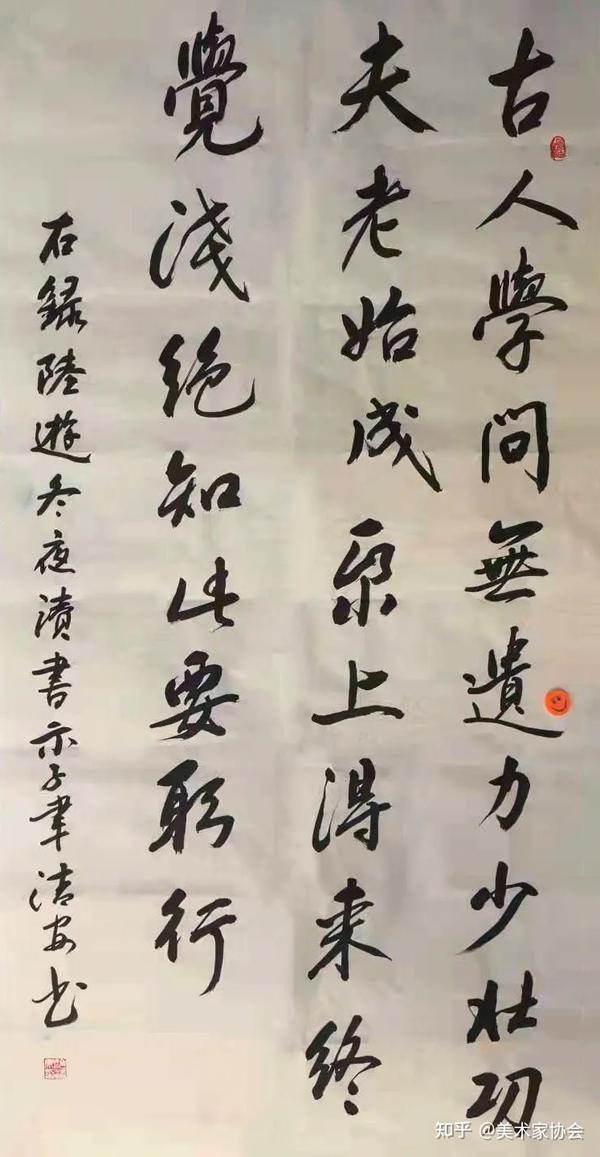 古人學問無遺力少壯功
夫老始成帋上得来終
覺淺絕知此要躬行
右録陸遊冬夜讀書示子聿洁安书
知乎 @美术家协会